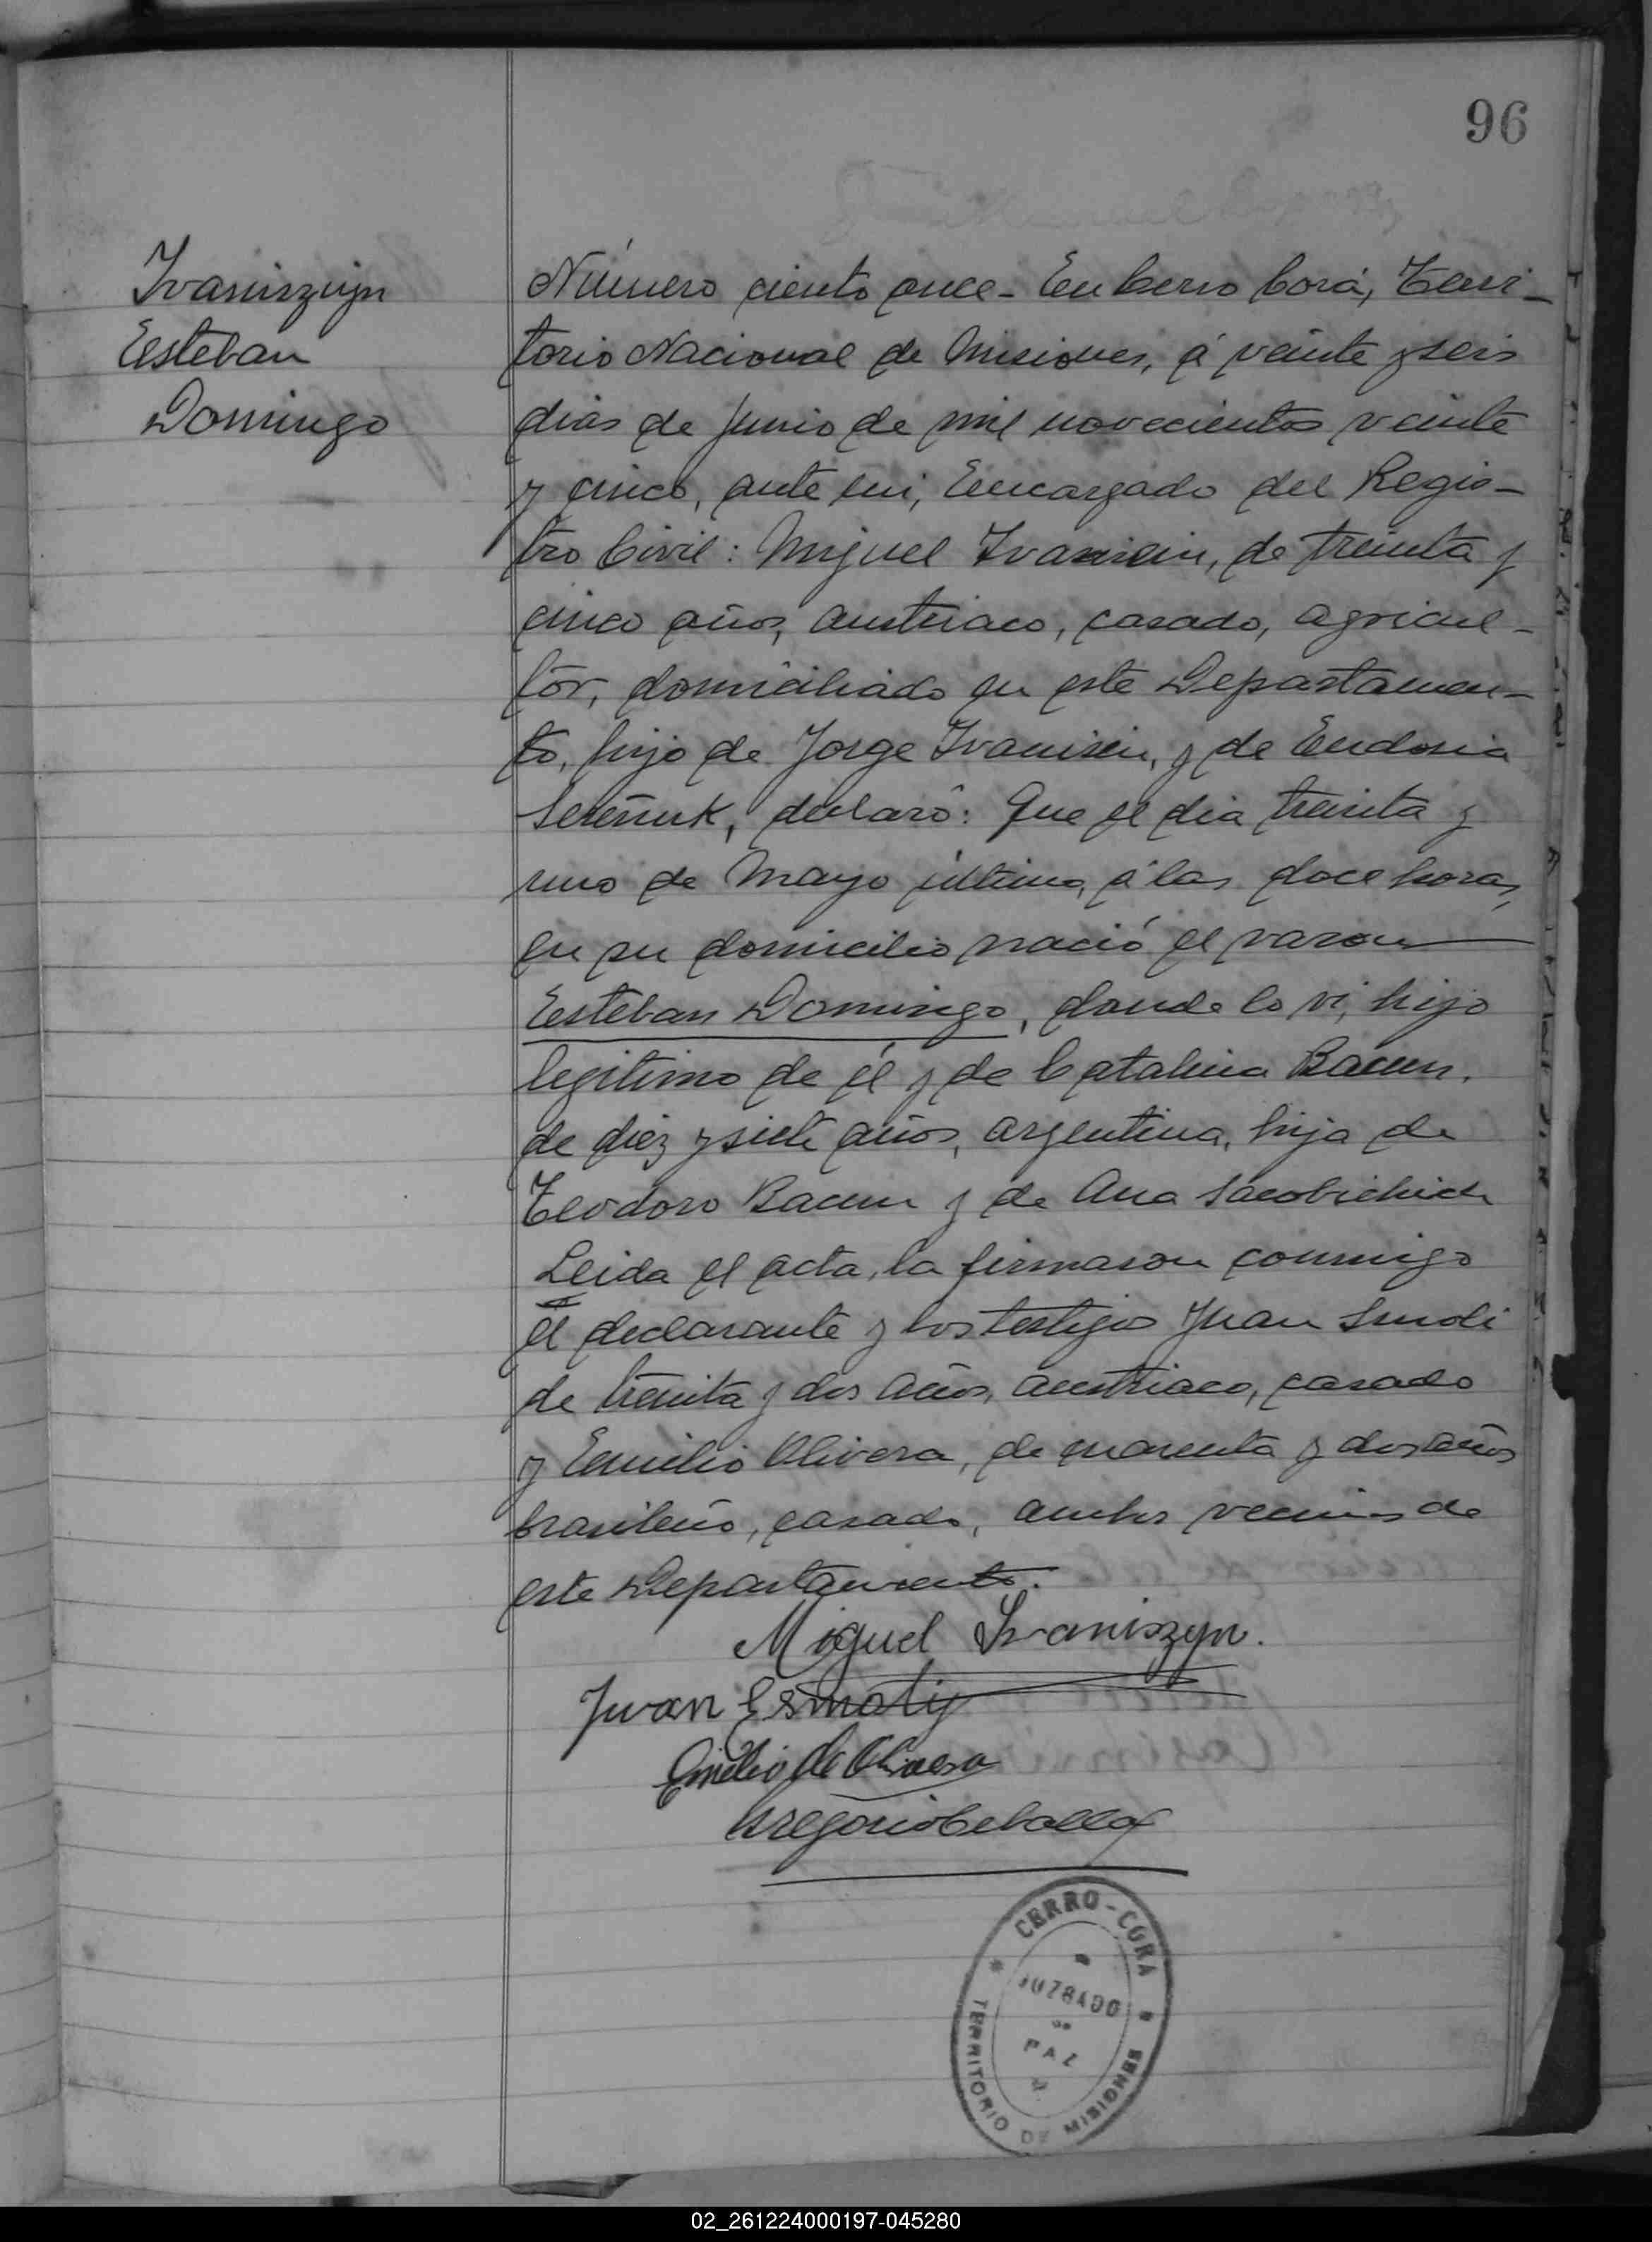 96
Ivaniszyn
Esteban
Domingo
Número ciento once - En Cerro Corá, Terri-
torio Nacional de Misiones, á veinte y seis
dias de Junio de mil novecientos veinte
y cinco, ante mi, Encargado del Regis-
tro Civil: Miguel Ivanisin, de treinta y
cinco años, austriaco, casado, agricul-
tor, domiciliado en este Departamen-
to, hijo de Jorge Ivanisin, y de Eudosia
declaró: Que el dia treinta y
uno de Mayo último, á las doce horas,
en su domicilio nació el varon
Esteban Domingo, donde lo vi, hijo
legitimo de él y de Catalina Bacun,
de diez y siete años, argentina, hija de
Teodoro Bacun y de Ana
Leida el acta, la firmaron conmigo
el declarante y los testigos Juan Smoli
de treinta y dos años, austriaco, casado
y Emilio Olivera, de cuarenta y dos años
brasileño, casado, ambos vecinos de
este Departamento.
Miguel Ivaniszyn.
Juan Esmoly
Emilio de Olivera
Gregorio Ceballos
CERRO-CORA
JUZGADO
DE
PAZ
TERRITORIO DE MISIONES
02_261224000197-045280